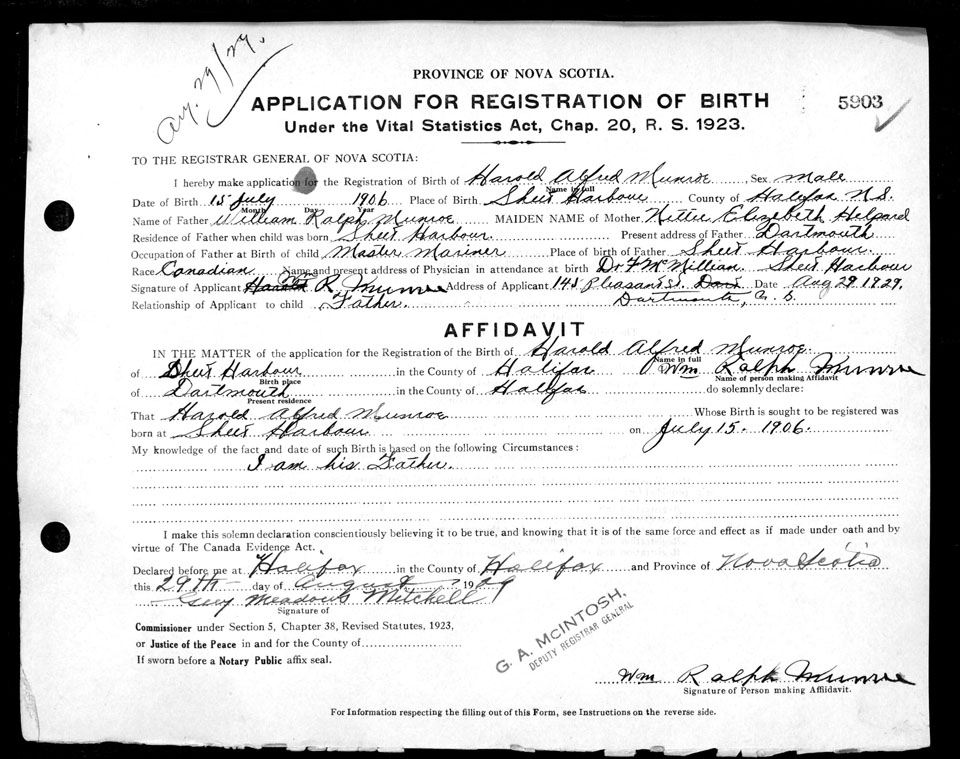 Aug. 29/29.
PROVINCE OF NOVA SCOTIA.
APPLICATION FOR REGISTRATION OF BIRTH
5903
Under the Vital Statistics Act, Chap. 20, R. S. 1923.
TO THE REGISTRAR GENERAL OF NOVA SCOTIA:
I hereby make application for the Registration of Birth of Harold Alfred Munroe Sex Male
Name in full
Date of Birth 15 July 1906 Place of Birth Sheet Harbour County of Halifax N.S.
Month Day Year
Name of Father William Ralph Munroe MAIDEN NAME of Mother Nettie Elizabeth Hilpard
Residence of Father when child was born Sheet Harbour. Present address of Father Dartmouth
Occupation of Father at Birth of child Master Mariner Place of birth of Father Sheet Harbour.
Race Canadian Name and present address of Physician in attendance at birth Dr F McMillian Sheet Harbour
Signature of Applicant R. Munroe Address of Applicant 145 Pleasant St. Dart Date Aug 29 1929.
Relationship of Applicant to child Father. Dartmouth, N. S.
AFFIDAVIT
IN THE MATTER of the application for the Registration of the Birth of Harold Alfred Munroe.
Name in full
of Sheet Harbour in the County of Halifax Wm Ralph Munroe
Birth place Name of person making Affidavit
of Dartmouth in the County of Halifax do solemnly declare:
Present residence
That Harold Alfred Munroe Whose Birth is sought to be registered was
born at Sheet Harbour on July 15. 1906.
My knowledge of the fact and date of such Birth is based on the following Circumstances:
I am his Father.
I make this solemn declaration conscientiously believing it to be true, and knowing that it is of the same force and effect as if made under oath and by
virtue of The Canada Evidence Act.
Declared before me at Halifax in the County of Halifax and Province of Nova Scotia
this 29th day of August 1929
Guy Meadows Mitchell
Signature of
Commissioner under Section 5, Chapter 38, Revised Statutes, 1923,
or Justice of the Peace in and for the County of
If sworn before a Notary Public affix seal.
G. A. McINTOSH,
DEPUTY REGISTRAR GENERAL
Wm Ralph Munroe
Signature of Person making Affidavit.
For Information respecting the filling out of this Form, see Instructions on the reverse side.